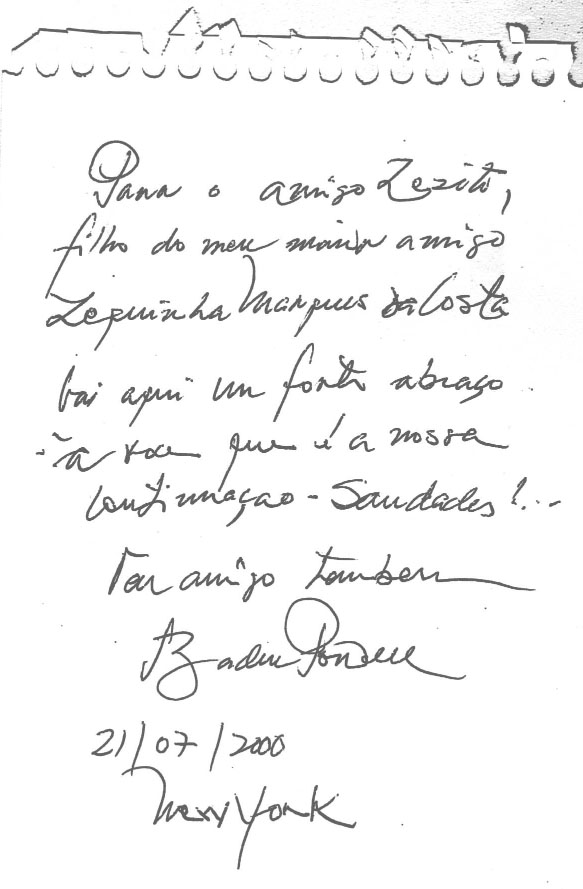 Para o amigo Zezito,
filho do meu maior amigo
Zequinha Marques da Costa
Vai aqui um forte abraço
à voce que é a nossa
continuaçao - Saudades!...
Teu amigo tambem
21/07/2000
New York